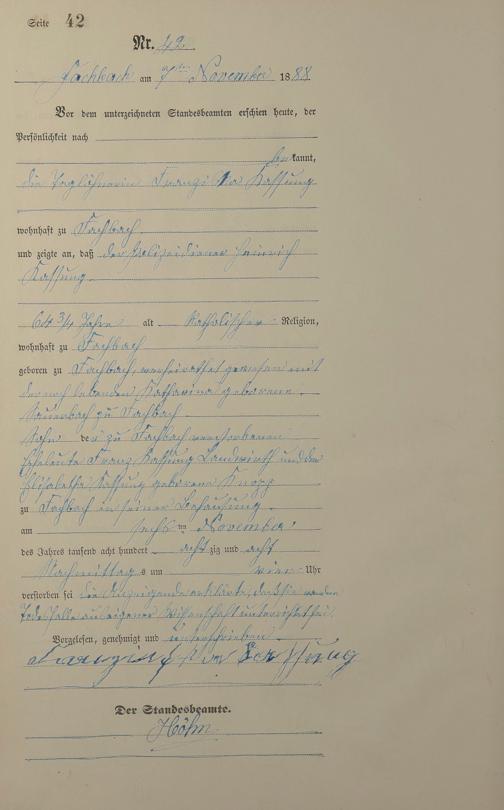 Seite 42
Nr. 42.
Fachbach am 7ten November 1888
Vor dem unterzeichneten Standesbeamten erschien heute, der
Persönlichkeit nach
bekannt,
die Taglöhnerin Franziska Kassung
wohnhaft zu Fachbach
und zeigte an, daß der Polizeidiener Heinrich
Kassung
64 3/4 Jahre alt katholischer Religion,
wohnhaft zu Fachbach
geboren zu Fachbach, verheirathet gewesen mit
der noch lebenden Katharina geborene
Sauerbach zu Fachbach
Sohn der zu Fachbach verstorbenen
Eheleute Franz Kassung Landwirth und der
Elisabetha Kassung geborene Knopp
zu Fachbach in seiner Behausung
am sechsten November
des Jahres tausend acht hundert achtzig und acht
Nachmittags um vier Uhr
verstorben sei die Anzeigende erklärte, daß sie von dem
Todesfalle aus eigener Wissenschaft unterrichtet sei.
Vorgelesen, genehmigt und unterschrieben
Franziska Kassung
Der Standesbeamte.
Höhn